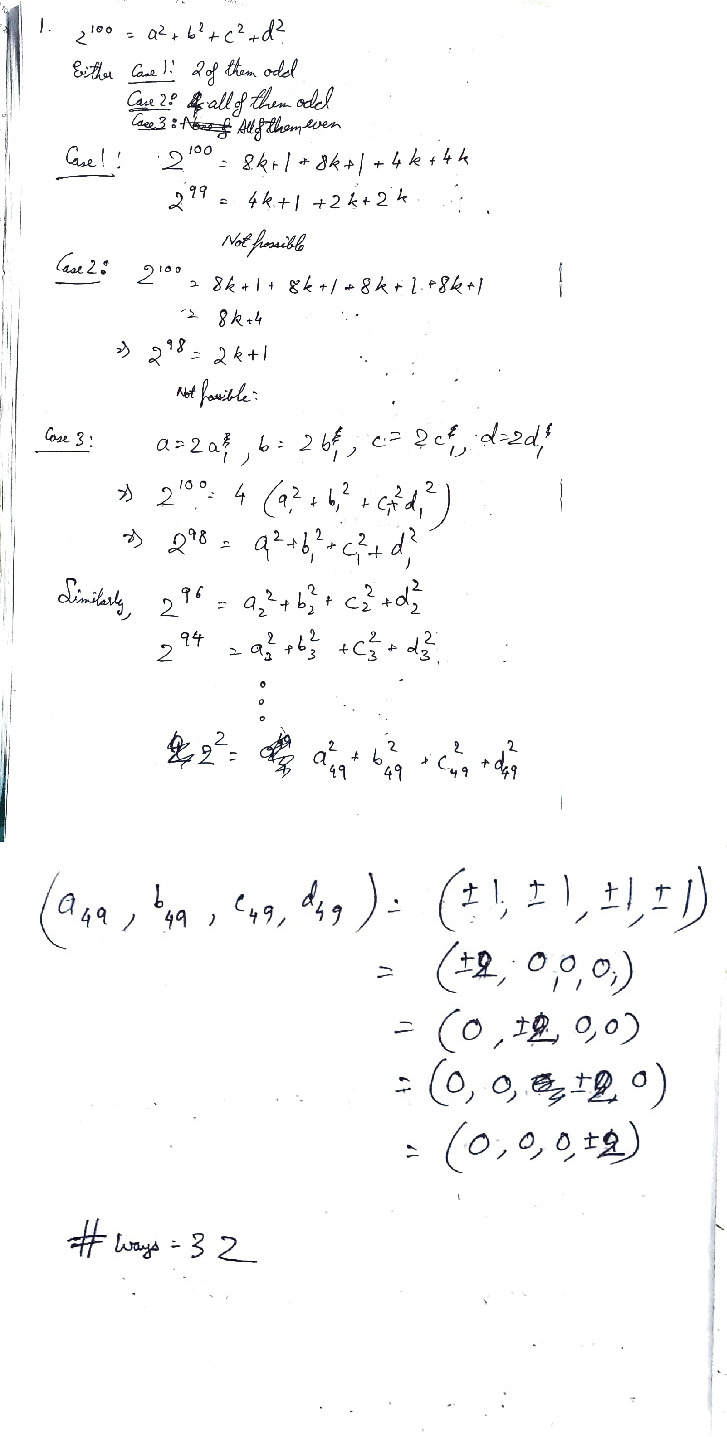 1. 2^100 = a² + b² + c² + d²
Either Case 1: 2 of them odd
Case 2: all of them odd
Case 3: All of them even
Case 1: 2^100 = 8k+1 + 8k+1 + 4k + 4k
2^99 = 4k+1 + 2k + 2k
Not possible
Case 2: 2^100 = 8k+1 + 8k+1 + 8k+1 + 8k+1
= 8k+4
⇒ 2^98 = 2k+1
Not possible:
Case 3: a = 2a₁, b = 2b₁, c = 2c₁, d = 2d₁
⇒ 2^100 = 4 (a₁² + b₁² + c₁² + d₁²)
⇒ 2^98 = a₁² + b₁² + c₁² + d₁²
Similarly, 2^96 = a₂² + b₂² + c₂² + d₂²
2^94 = a₃² + b₃² + c₃² + d₃²
2² = a₄₉² + b₄₉² + c₄₉² + d₄₉²
(a₄₉, b₄₉, c₄₉, d₄₉) = (±1, ±1, ±1, ±1)
= (±2, 0, 0, 0,)
= (0, ±2, 0, 0)
= (0, 0, ±2, 0)
= (0, 0, 0, ±2)
# ways = 32